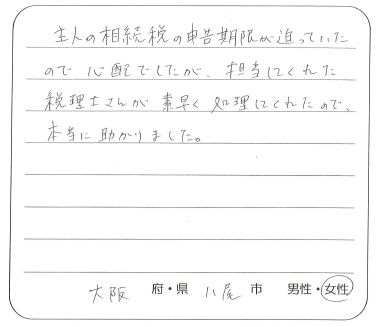 主人の相続税の申告期限が迫っていた
ので心配でしたが、担当してくれた
税理士さんが素早く処理してくれたので、
本当に助かりました。
大阪 府・県 八尾 市 男性・女性